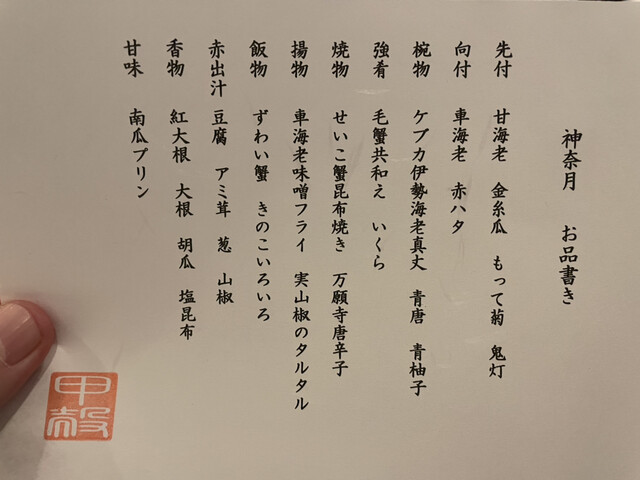 神奈月　お品書き
先付　甘海老　金糸瓜　もって菊　鬼灯
向付　車海老　赤ハタ
椀物　ケブカ伊勢海老真丈　青唐　青柚子
強肴　毛蟹共和え　いくら
焼物　せいこ蟹昆布焼き　万願寺唐辛子
揚物　車海老味噌フライ　実山椒のタルタル
飯物　ずわい蟹　きのこいろいろ
赤出汁　豆腐　アミ茸　葱　山椒
香物　紅大根　大根　胡瓜　塩昆布
甘味　南瓜プリン
甲殻